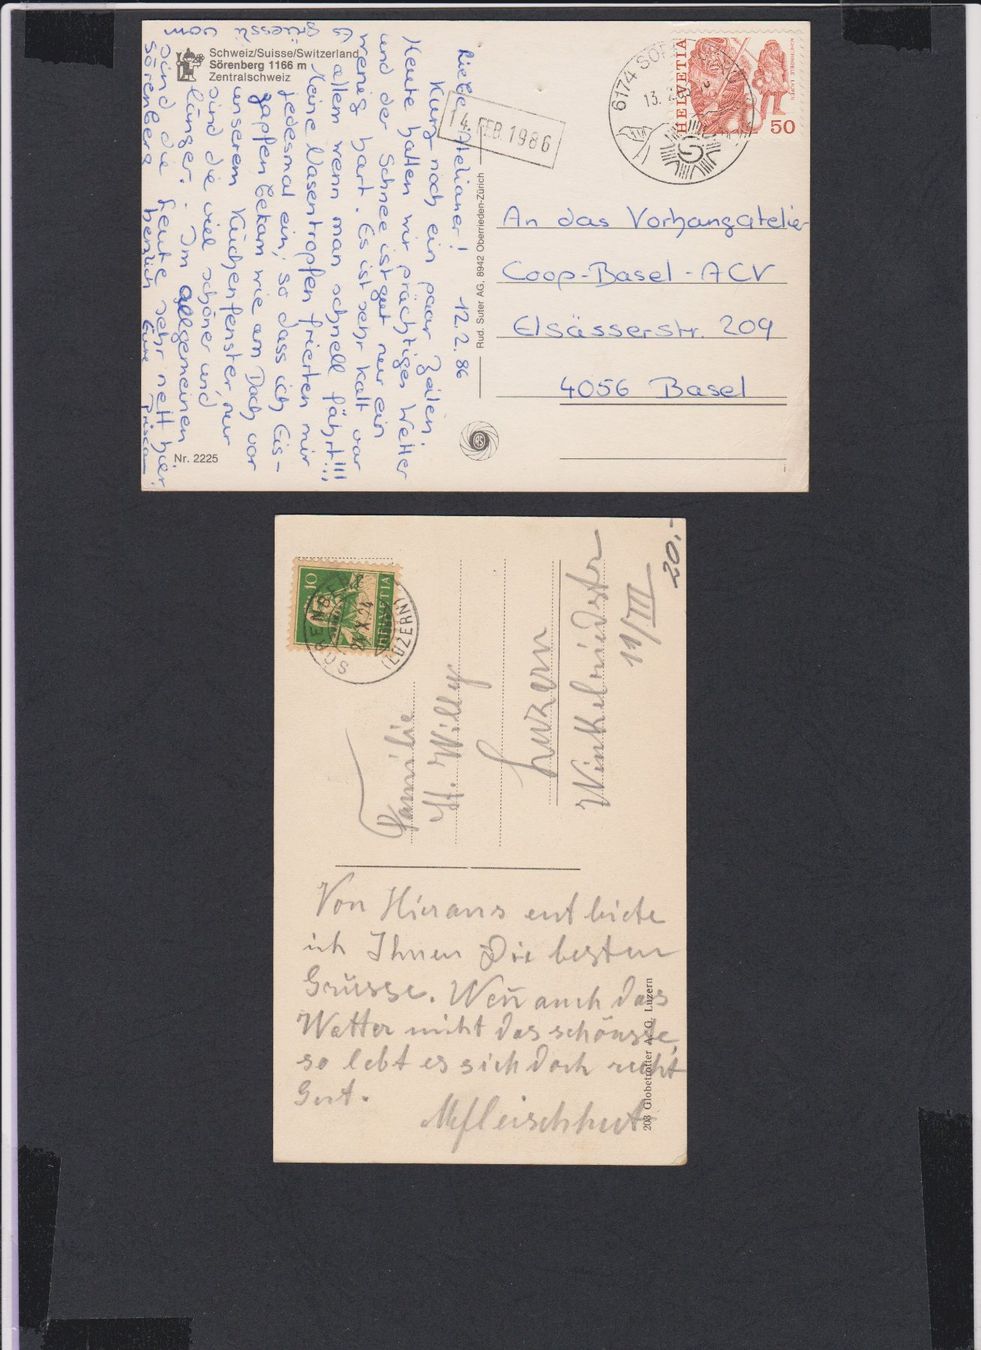 Schweiz/Suisse/Switzerland
Sörenberg 1166 m
Zentralschweiz
Nr. 2225
12.2.86
Liebe Atelianer!
Kurz noch ein paar Zeilen.
Heute hatten wir prächtiges Wetter
und der Schnee ist gut nur ein
wenig hart. Es ist sehr kalt vor
allem wenn man schnell fährt!!!
Meine Nasentropfen frierten mir
jedesmal ein, so dass ich Eis-
zapfen bekam wie am Dach vor
unserem Küchenfenster, nur
sind die viel schöner und
länger. Im allgemeinen
sind die Leute sehr nett hier.
vom
Sörenberg herzlich Eure
Rud. Suter AG, 8942 Oberrieden-Zürich
14. FEB. 1986
6174
13.
HELVETIA
50
An das Vorhangatelier
Coop-Basel-ACV
Elsässerstr. 209
4056 Basel
10
HELVETIA
(LUZERN)
Familie
Willy
Luzern
Winkelriedstr
11/III
20,-
Von Hieraus entbiete
ich Ihnen Die besten
Grüsse. Wen̄ auch das
Wetter nicht das schönste,
so lebt es sich doch recht
Gut.
203 Globetrotter A.-G. Luzern